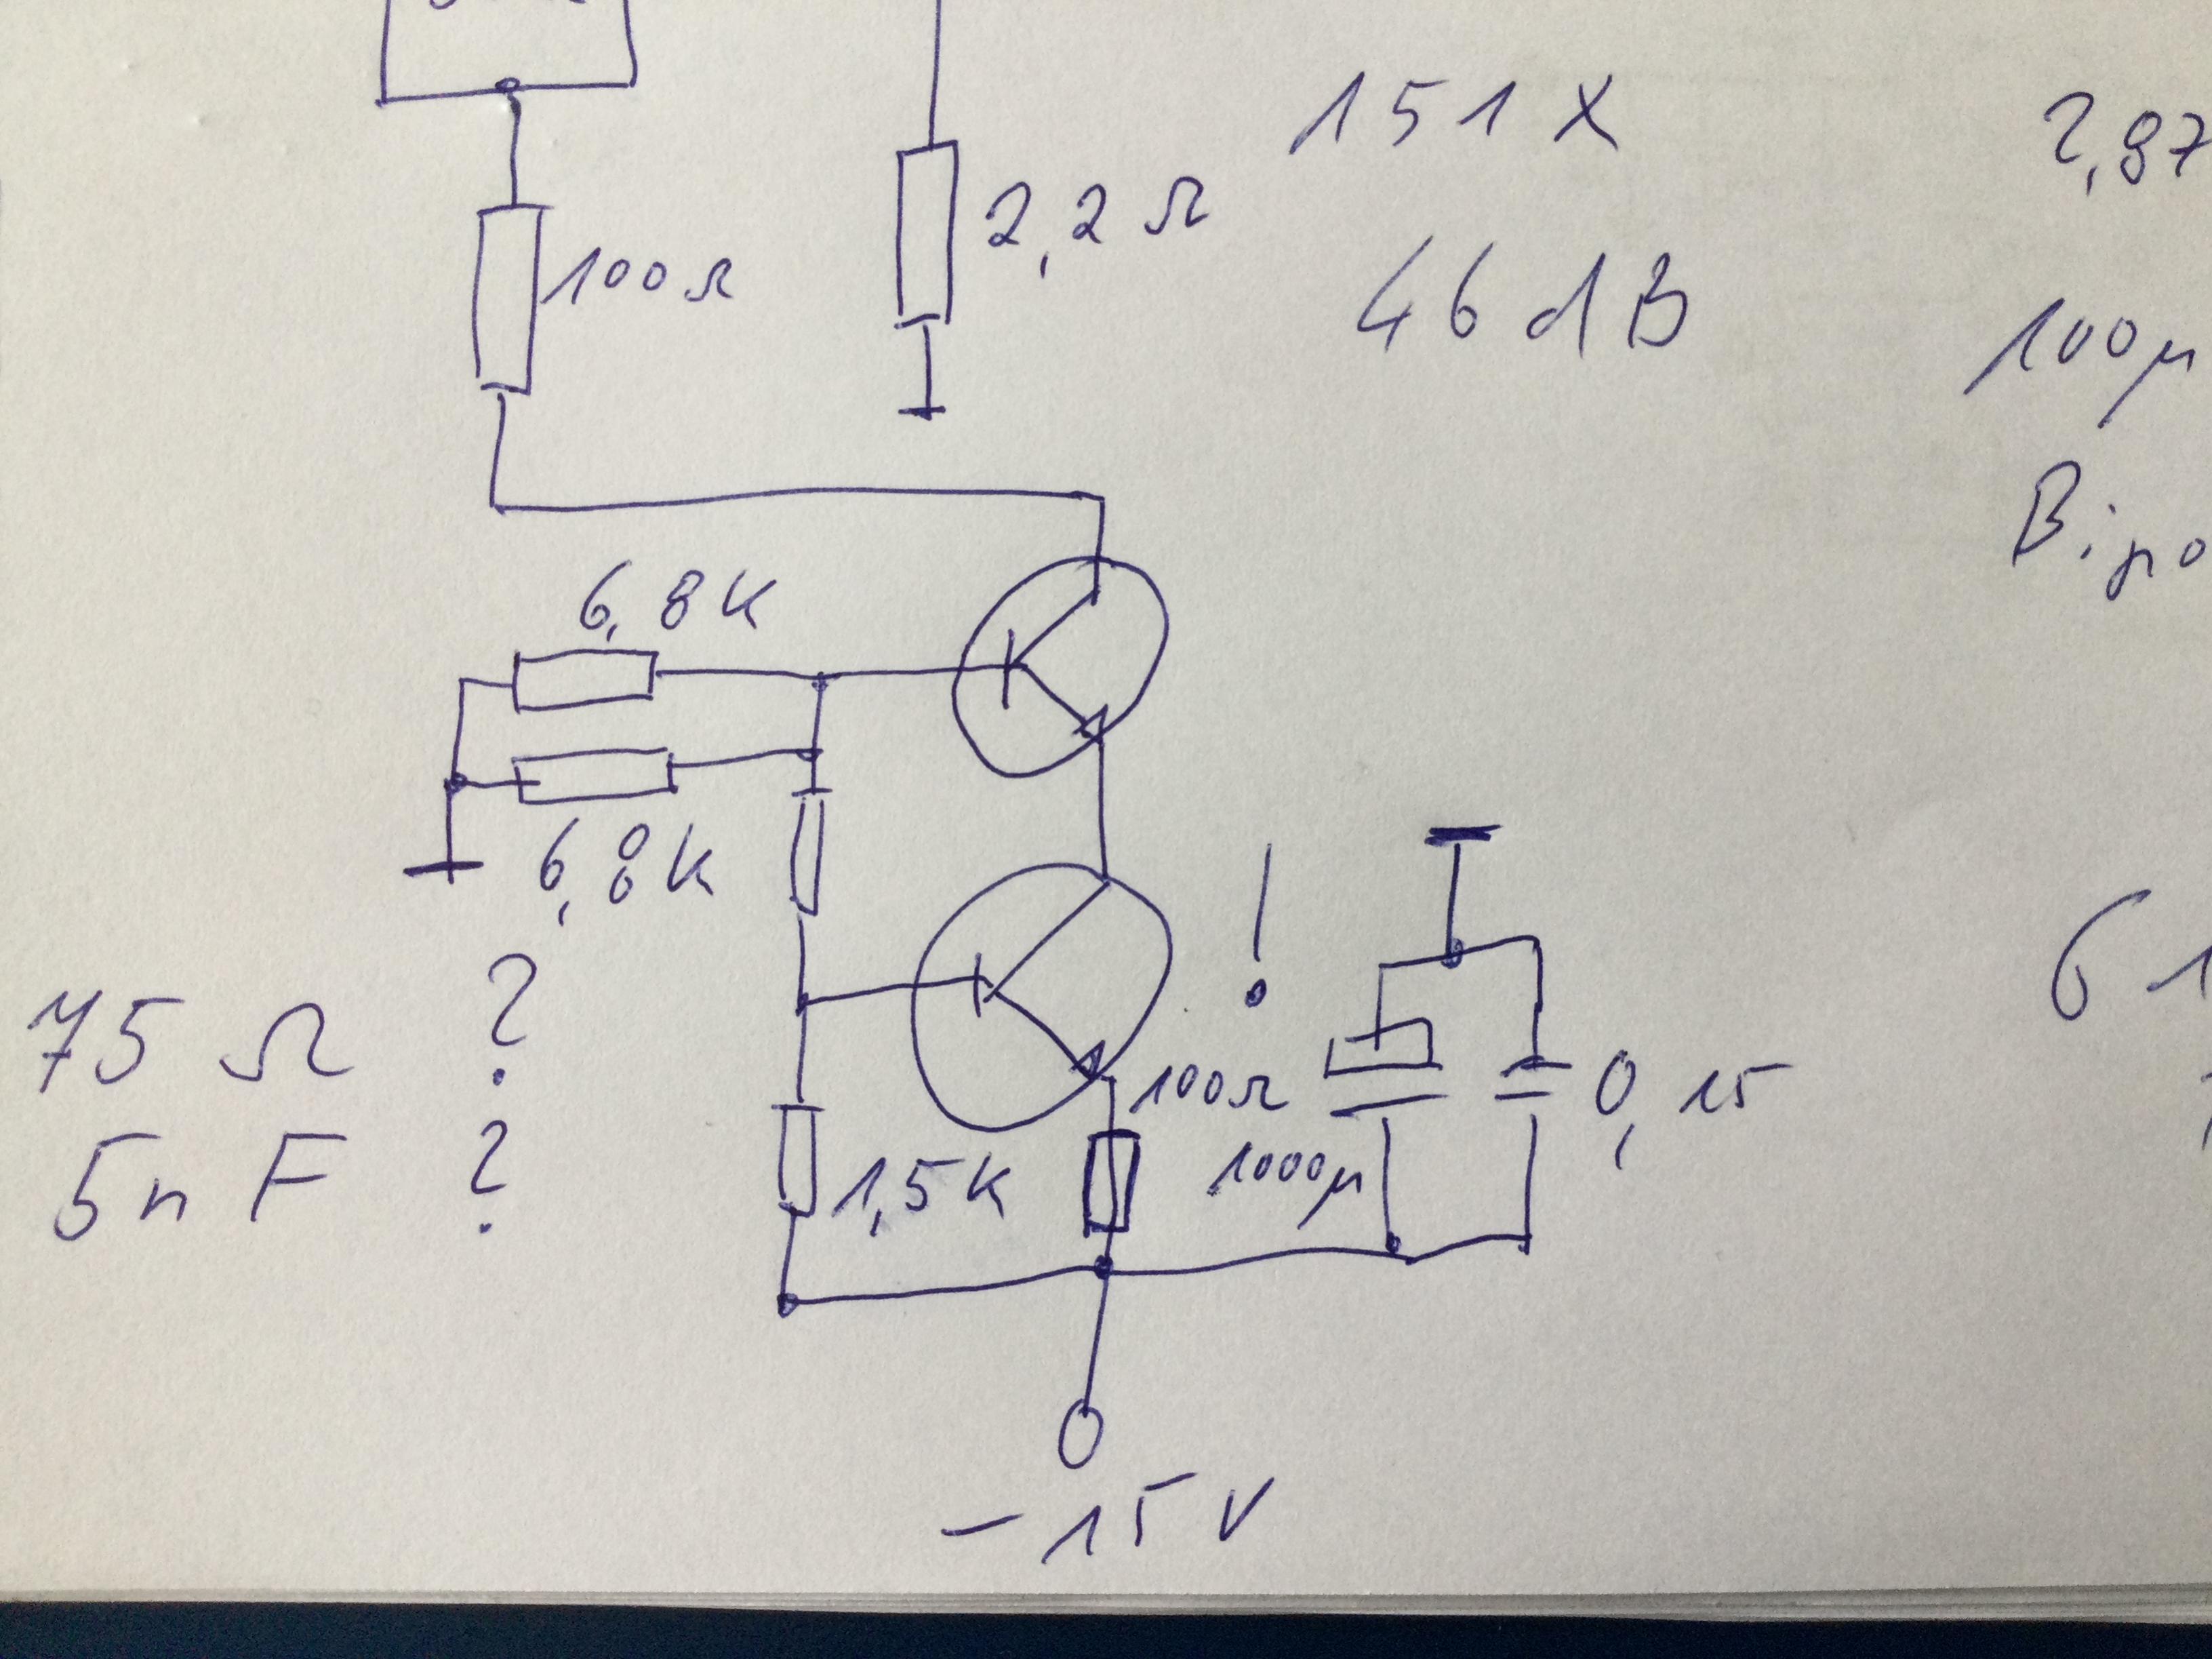 151 X
2,87
2,2 Ω
100 Ω
46 dB
100µ
Bipo
6,8K
6,8K
61
75 Ω ?
100Ω
0,15
5n F ?
1,5K
1000µ
!
-15V